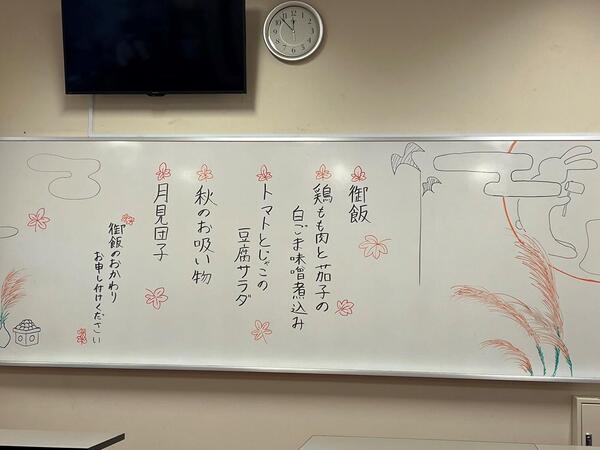 御飯
鶏もも肉と茄子の
白ごま味噌煮込み
トマトとじゃこの
豆腐サラダ
秋のお吸い物
月見団子
御飯のおかわり
お申し付けください